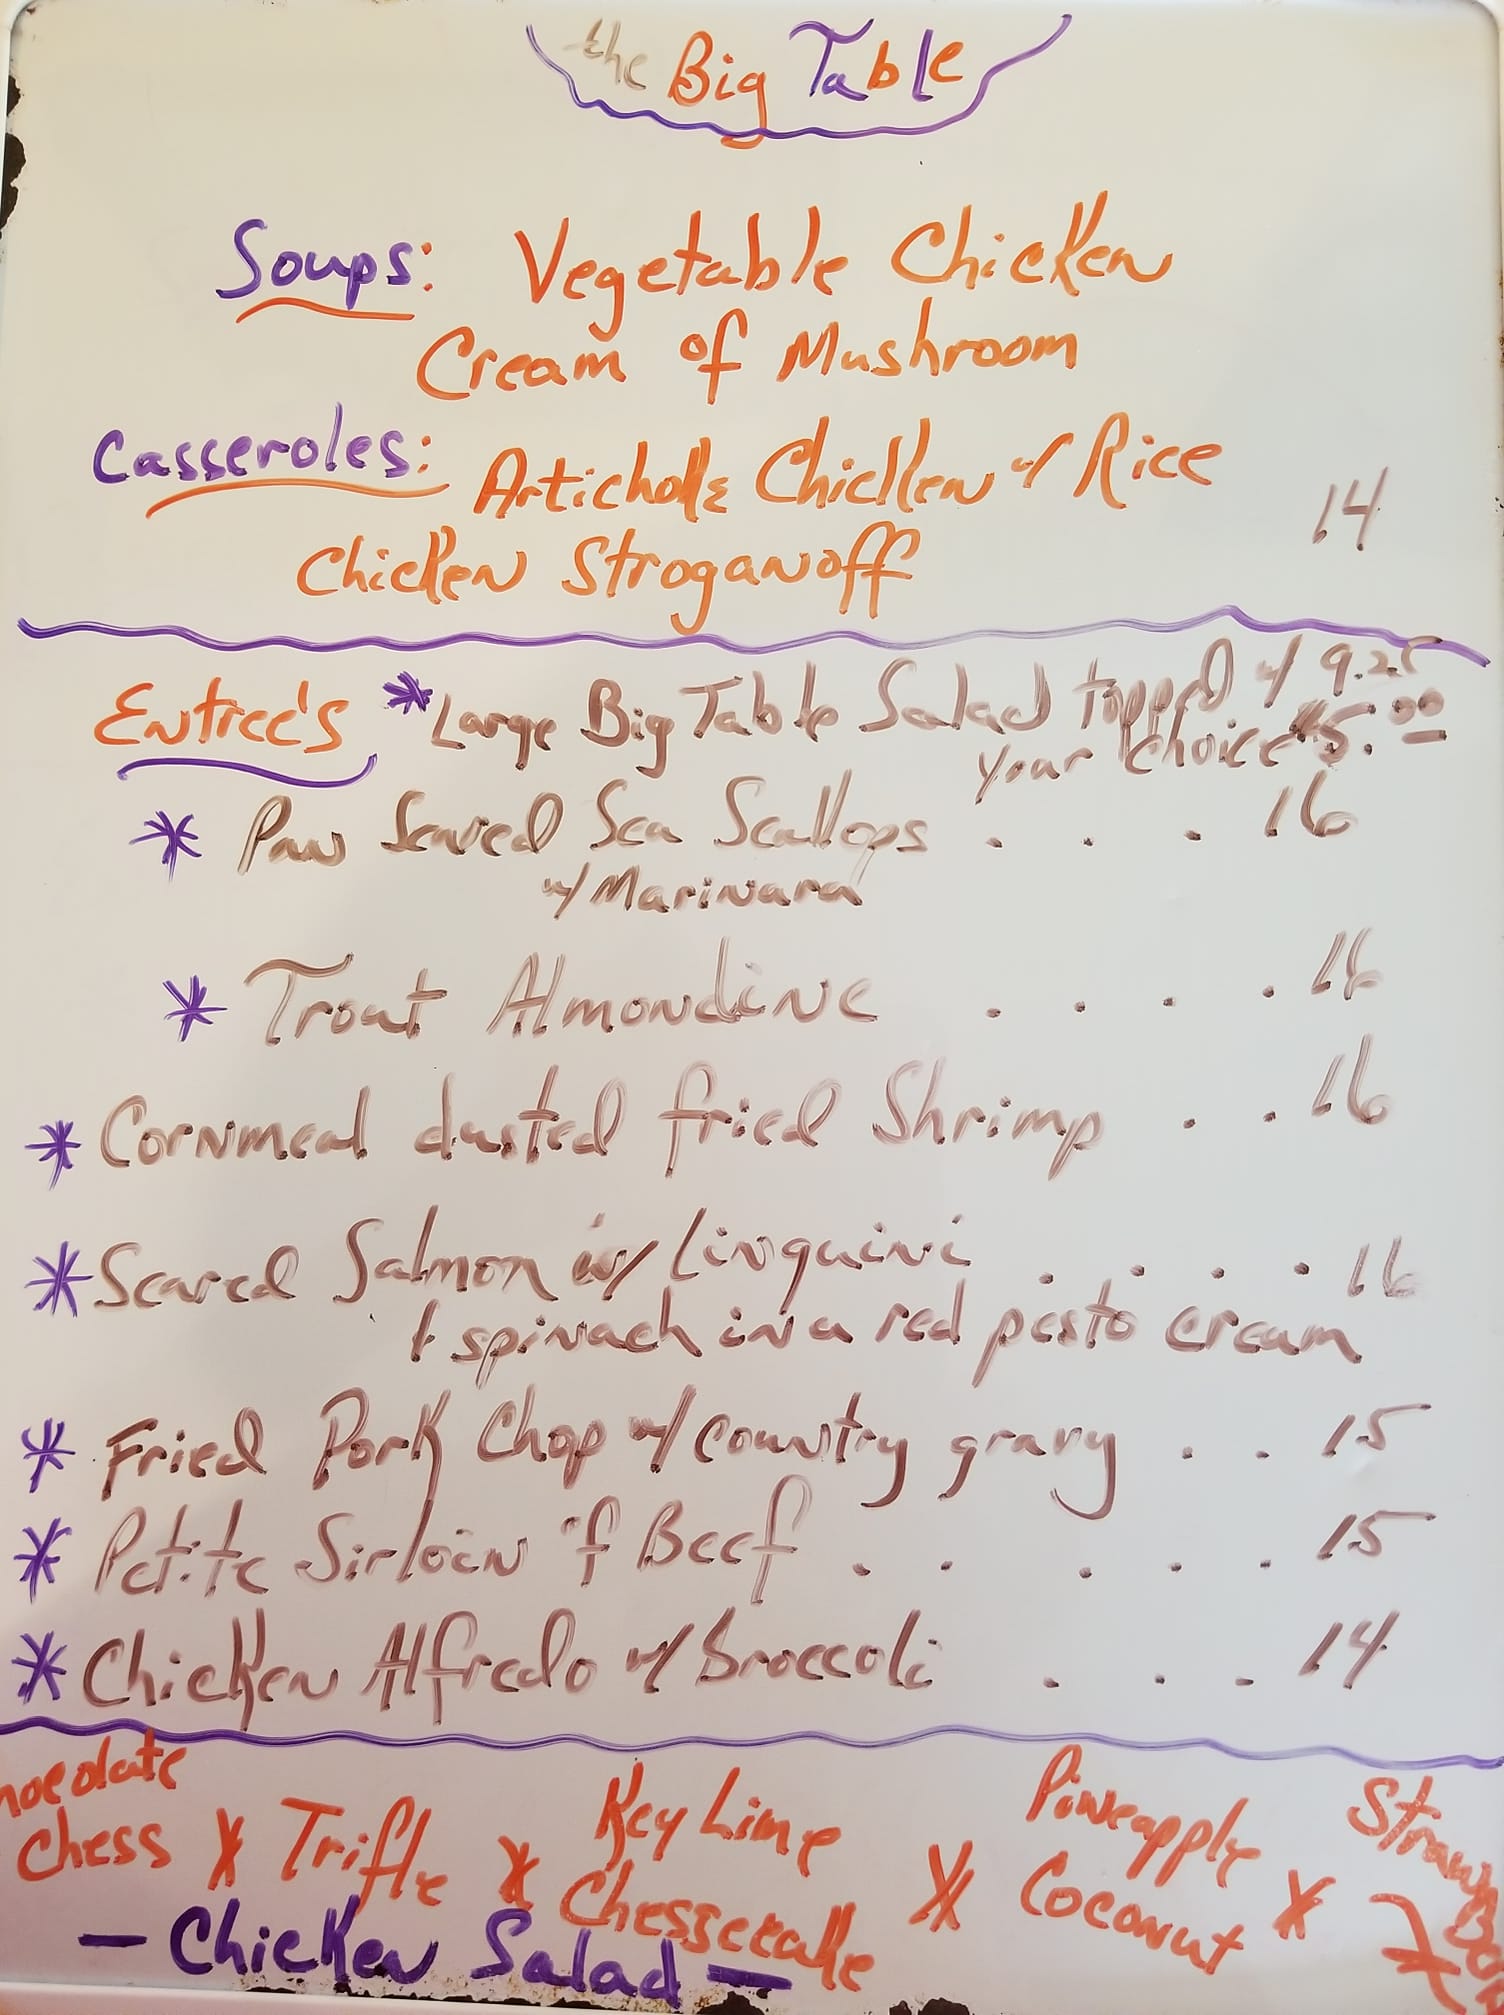 the Big Table
Soups: Vegetable Chicken
Cream of Mushroom
Casseroles: Artichoke Chicken w/ Rice
14
Chicken Stroganoff
Entree's * Large Big Table Salad topped w/ 9.25
your choice $5.00
* Pan Seared Sea Scallops . . . 16
w/ Marinara
* Trout Almondine . . . . 16
* Cornmeal dusted fried Shrimp . . 16
* Seared Salmon w/ Linquini . . . . 16
+ spinach in a red pesto cream
* Fried Pork Chop w/ country gravy . . 15
* Petite Sirloin of Beef . . . . . 15
* Chicken Alfredo w/ Broccoli . . . 14
hocolate
Chess * Trifle * Key Lime Chessecake * Pineapple Coconut * Straw
Ber
- Chicken Salad -